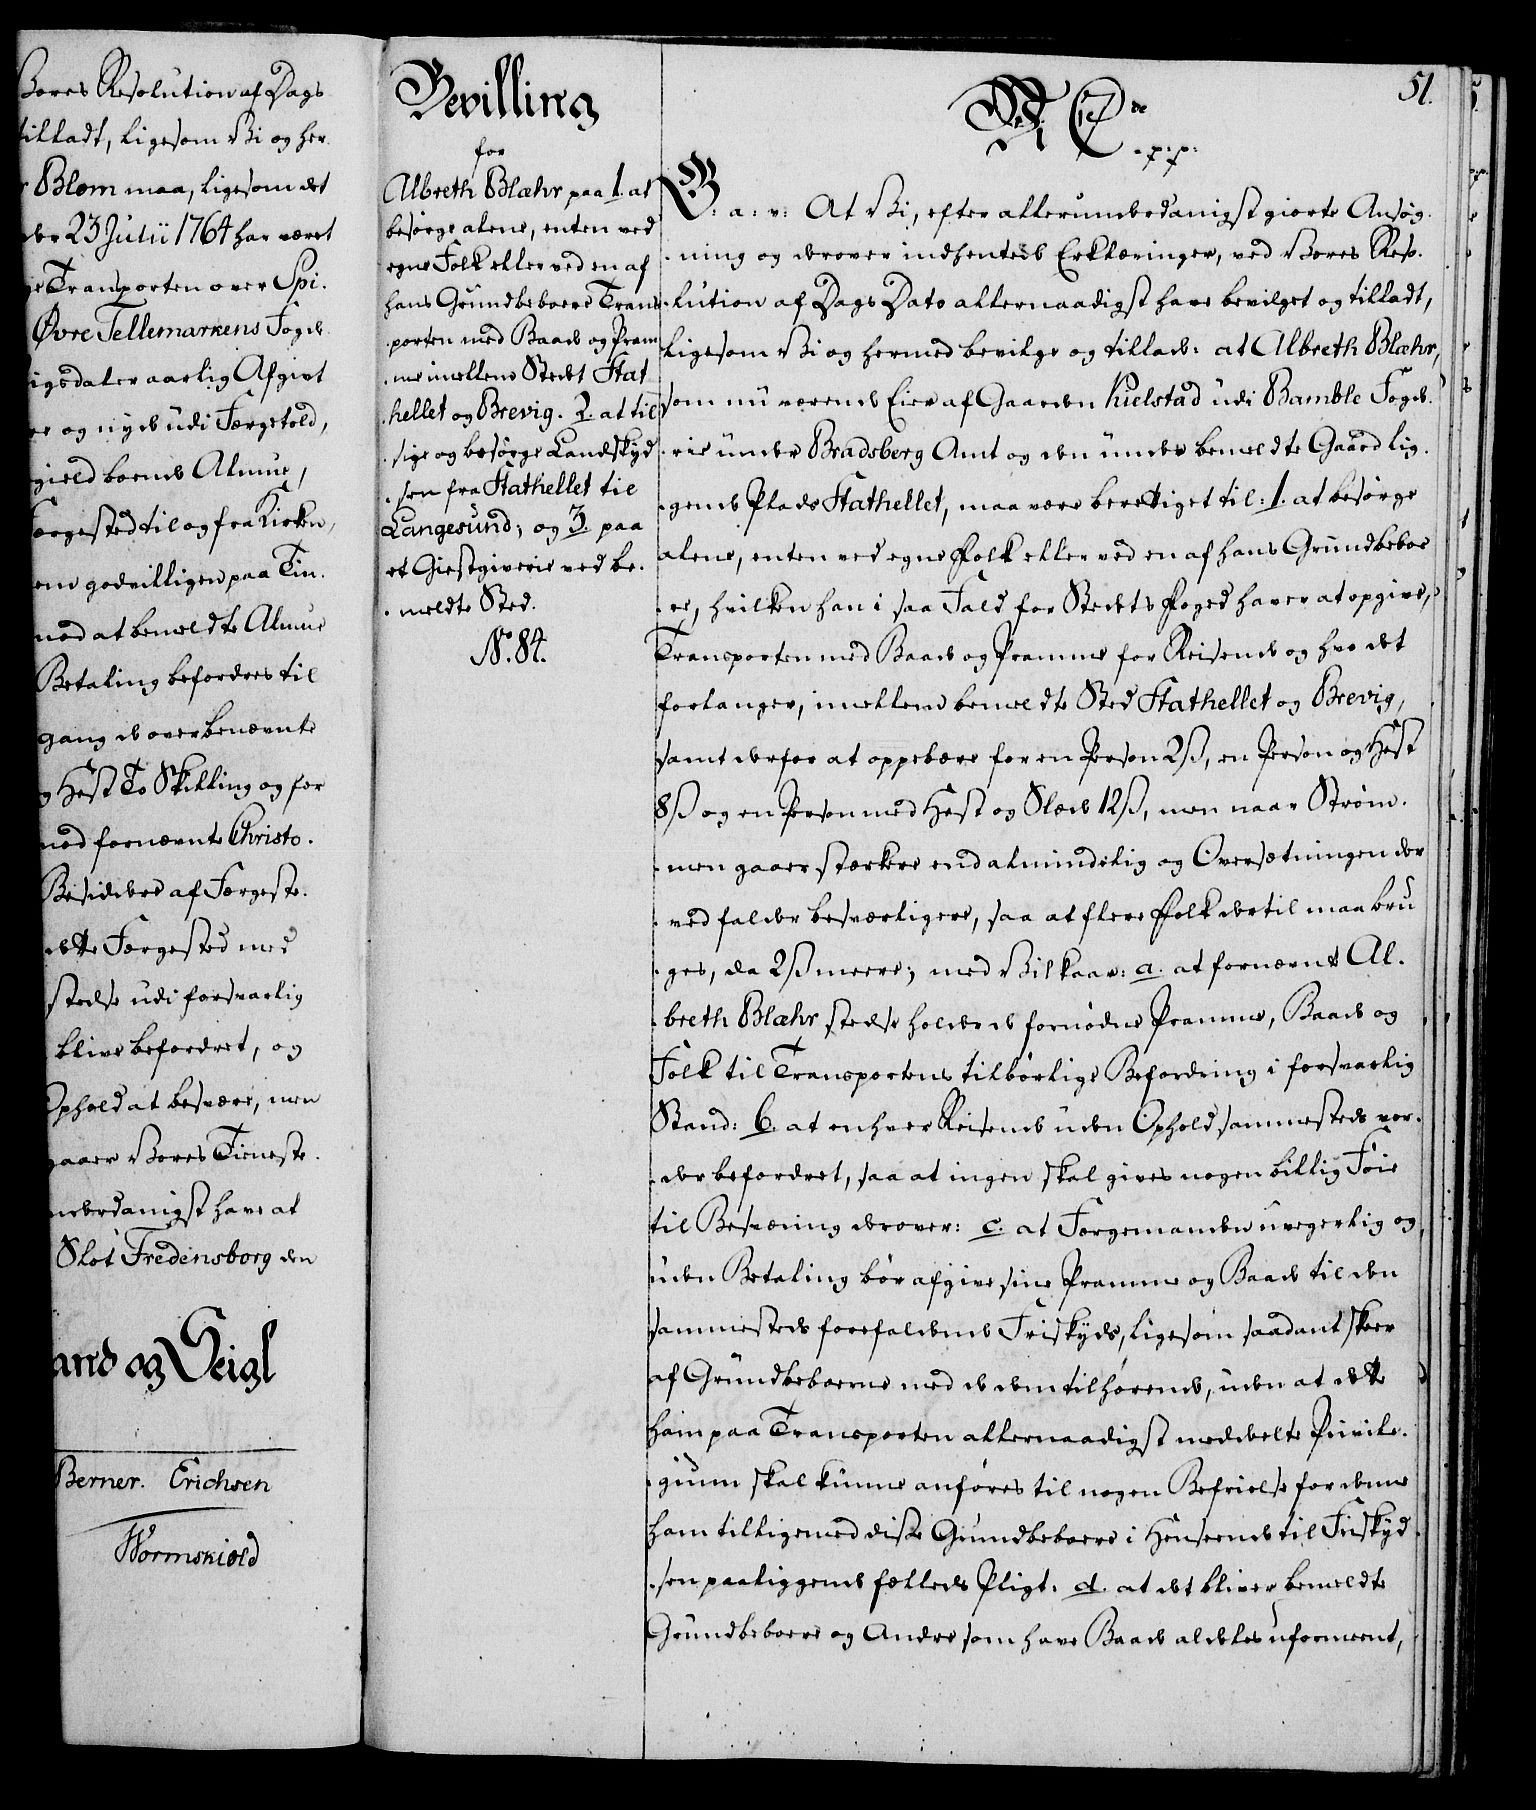 Vores Resolution af Dags
tilladt, ligesom Vi og her
Blom maa, ligesom det
der 23 Julii 1764 har været
ge Transporten over Spi-
Øvre Tellemarkens Foged-
igsdaler aarlig Afgivt
re og nyde udi Færgetold,
gield boende Almue,
ærgested til og fra Kirken,
em godvilligen paa Tin-
mod at bemeldte Almue
Betaling befordres til
gang de overbenævnte
g Hest To Skilling og for
med fornævnte Christo-
Besiddere af Færgeste-
dette Færgested med
stedse udi forsvarlig
blive befordret, og
Ophold at besvære, men
gaaer Vores Tieneste
underdanigst have at
Slot Fredensborg den
and og Seigl
Berner. Erichsen
Wormskiold
Bevilling
for
Albreth Blæhr paa 1. at
besørge alene, enten ved
egne Folk eller ved en af
hans Grundbeboere Trans-
porten med Baade og Pram-
me imellem Stedet Stat-
hellet og Brevig. 2. at til-
sige og besørge Landskyd-
sen fra Stathellet til
Langesund; og 3. paa
et Giestgiverie ved be-
meldte Sted.
No. 84.
51.
Wi C 7de
p. p.
G: a: v: At Vi, efter allerunderdanigst giorte Ansøg-
ning og derover indhentede Erklæringer, ved Vores Reso-
lution af Dags Dato allernaadigst have bevilget og tilladt,
ligesom Vi og hermed bevilge og tillade: at Albreth Blæhr,
som nu værende Eier af Gaarden Kielstad udi Bamble Foged-
rie under Bradsberg Amt og den under bemeldte Gaard lig-
gende Plads Stathellet, maa være berettiget til: 1. at besørge
alene, enten ved egne Folk eller ved en af hans Grundbeboe-
re, hvilken han i saa Fald for Stedets Foged haver at opgive,
Transporten med Baade og Pramme for Reisende og hvo det
forlanger, imellem bemeldte Sted Stathellet og Brevig,
samt derfor at oppebære for en Person 2ß, en Person og Hest
8ß og en Person med Hest og Slæde 12ß, men naar Strøm-
men gaaer stærkere end almindelig og Oversætningen der-
ved falder besværligere, saa at flere Folk dertil maa bru-
ges, da 2ß meere; med Vilkaar: a. at fornævnte Al-
breth Blæhr stedse holder de fornødne Pramme, Baade og
Folk til Transportens tilbørlige Befordring i forsvarlig
Stand: b. at enhver Reisende uden Ophold sammesteds vor-
der befordret, saa at ingen skal gives nogen billig Føie
til Besværing derover: c. at Færgemanden uvegerlig og
uden Betaling bør afgive sine Pramme og Baade til den
sammesteds forefaldende Friskyds, ligesom saadant skeer
af Grundbeboerne med de dem tilhørende, uden at dette
ham paa Transporten allernaadigst meddeelte Privile-
gium skal kunne anføres til nogen Befrielse for denne
ham tilligemed disse Grundbeboere i Henseende til Friskyd-
sen paaliggende fælleds Pligt: d. at det bliver bemeldte
Grundbeboere og Andre som have Baade aldeles uformeent,